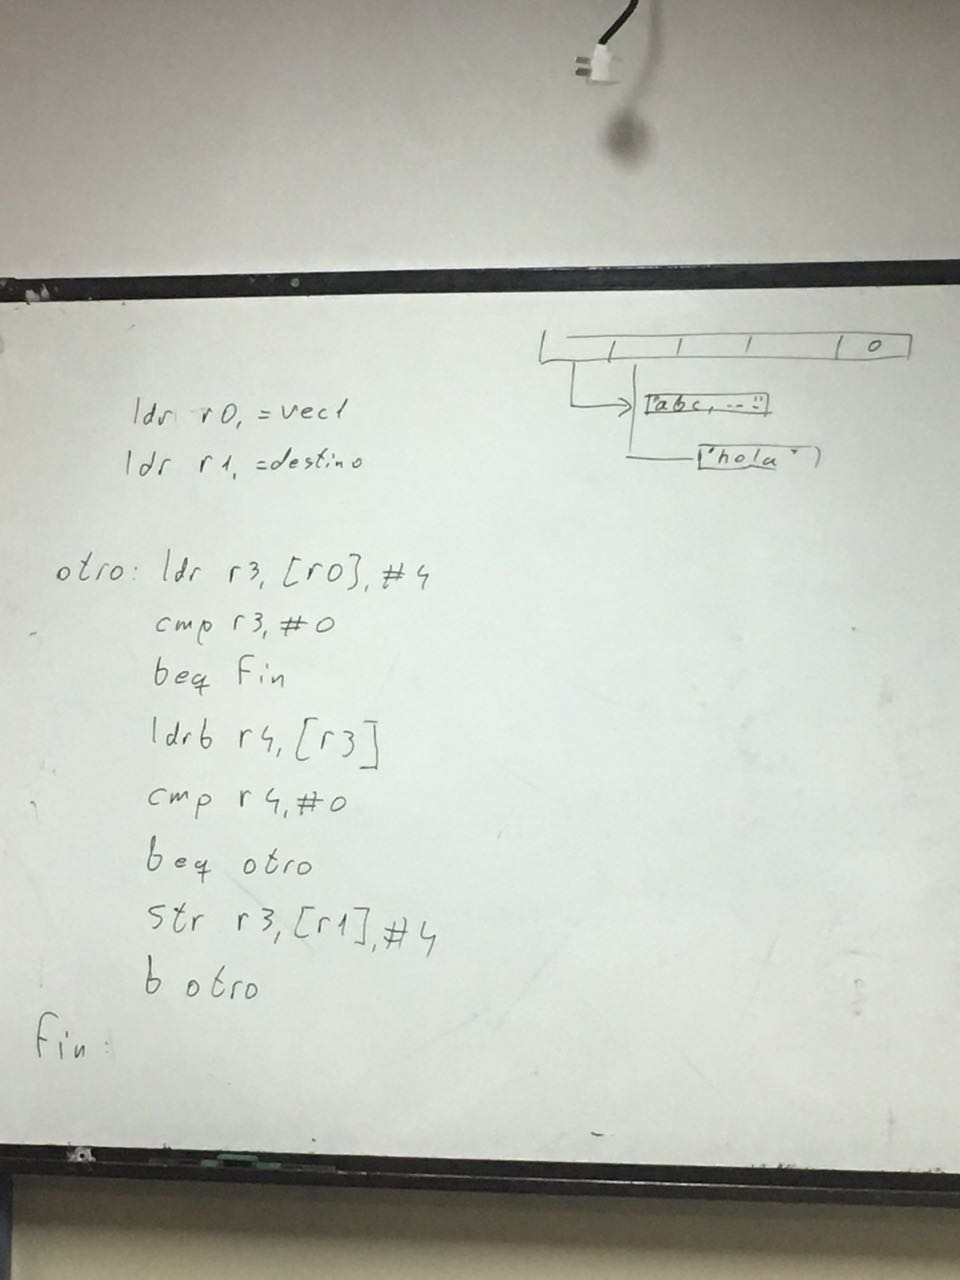 0
ldr r0, =vec1
"abc, ---"
ldr r1, =destino
"hola"
otro: ldr r3, [r0], #4
cmp r3, #0
beq fin
ldrb r4, [r3]
cmp r4, #0
beq otro
str r3, [r1], #4
b otro
fin: